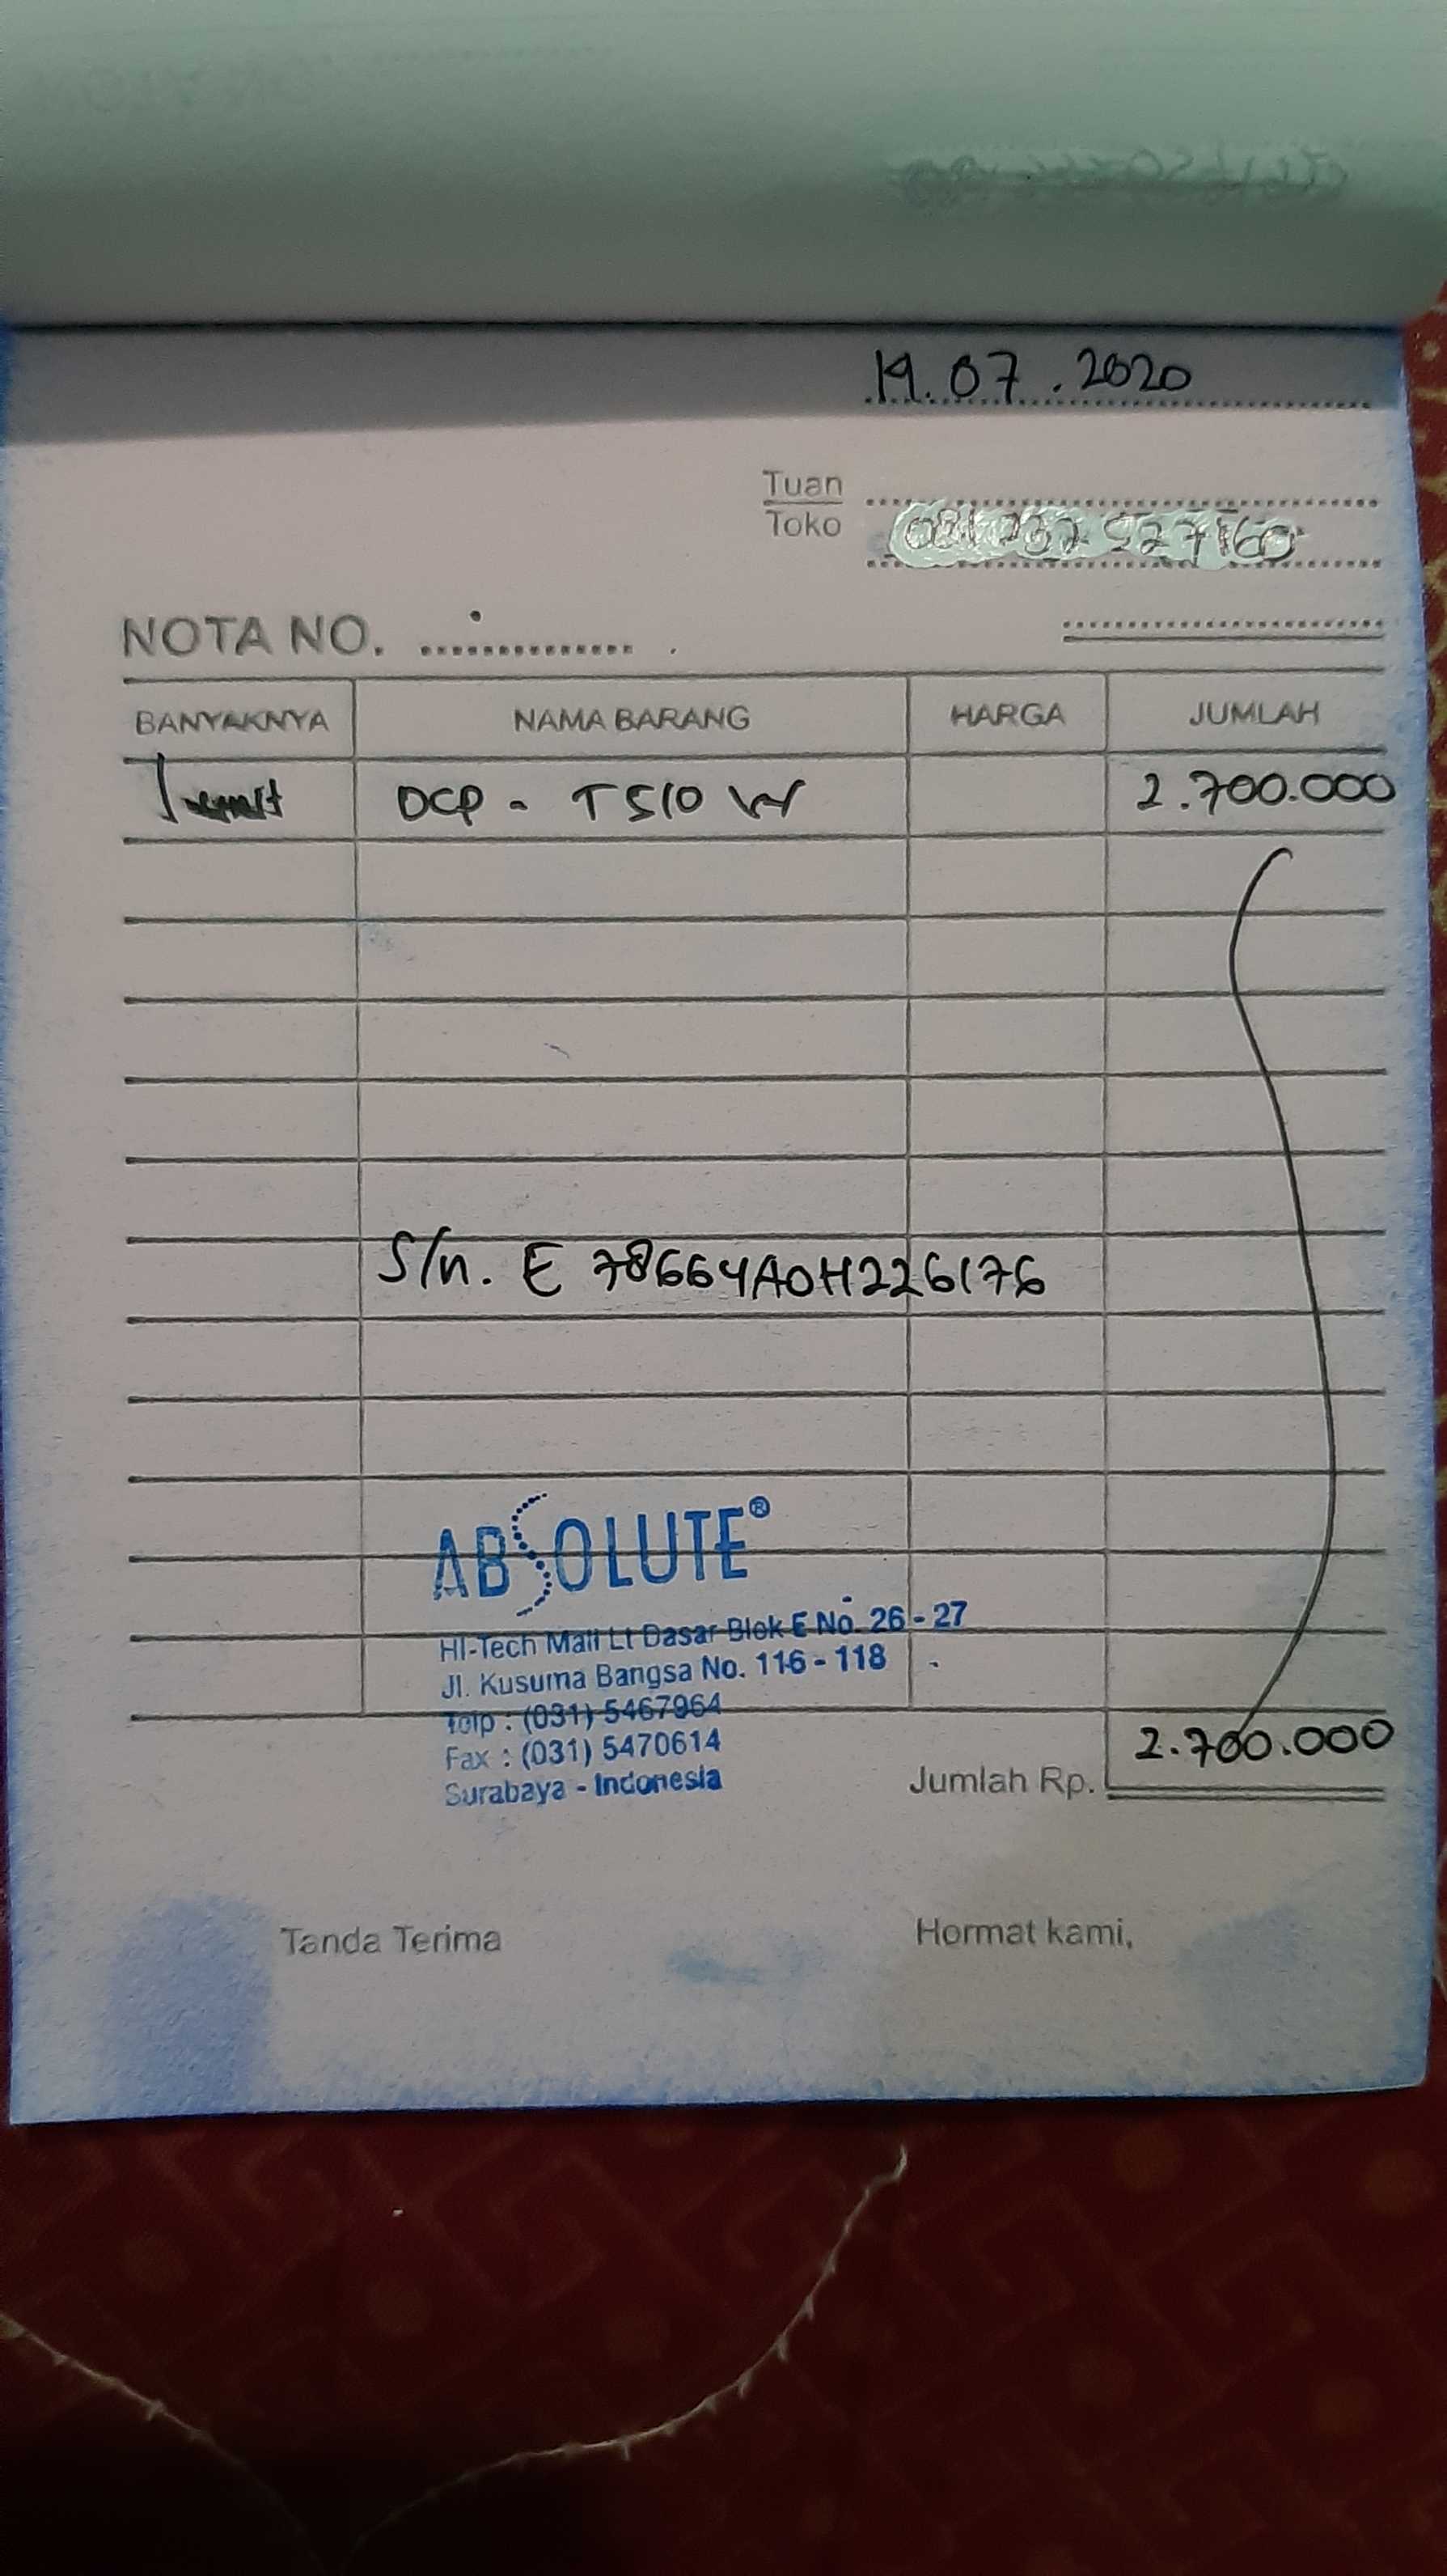 19.07.2020
Tuan
Toko
NOTA NO. ...............
BANYAKNYA NAMA BARANG HARGA JUMLAH
1 DCP - T510 W 2.700.000
S/n. E 78664A0H226176
ABSOLUTE®
HI-Tech Mall Lt Dasar Blok E No. 26 - 27
Jl. Kusuma Bangsa No. 116 - 118
Telp : (031) 5467964
Fax : (031) 5470614
Surabaya - Indonesia
Jumlah Rp. 2.700.000
Tanda Terima Hormat kami,